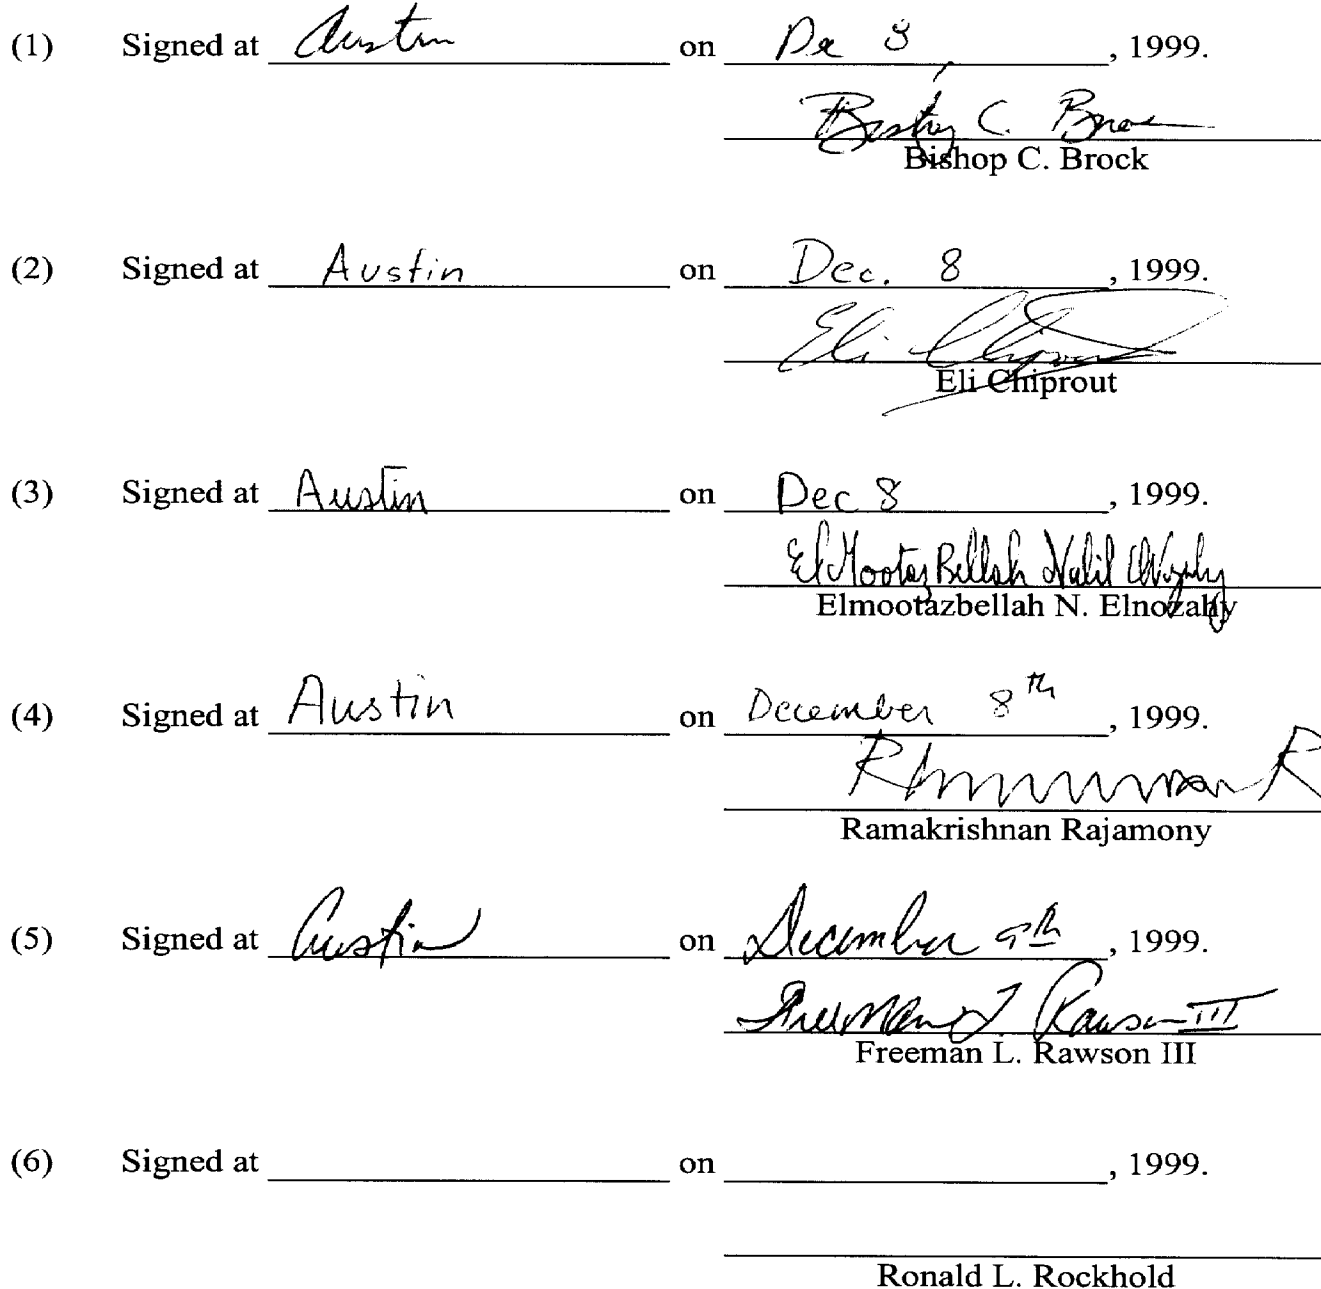 (1) Signed at Austin on De 8, 1999.
Bishop C. Brock
Bishop C. Brock
(2) Signed at Austin on Dec. 8, 1999.
Eli Chiprout
Eli Chiprout
(3) Signed at Austin on Dec 8, 1999.
ElMootazBellah Nabil Elnozahy
Elmootazbellah N. Elnozahy
(4) Signed at Austin on December 8th, 1999.
Ramakrishnan Rajamony
(5) Signed at Austin on December 9th, 1999.
Freeman L. Rawson III
Freeman L. Rawson III
(6) Signed at on , 1999.
Ronald L. Rockhold